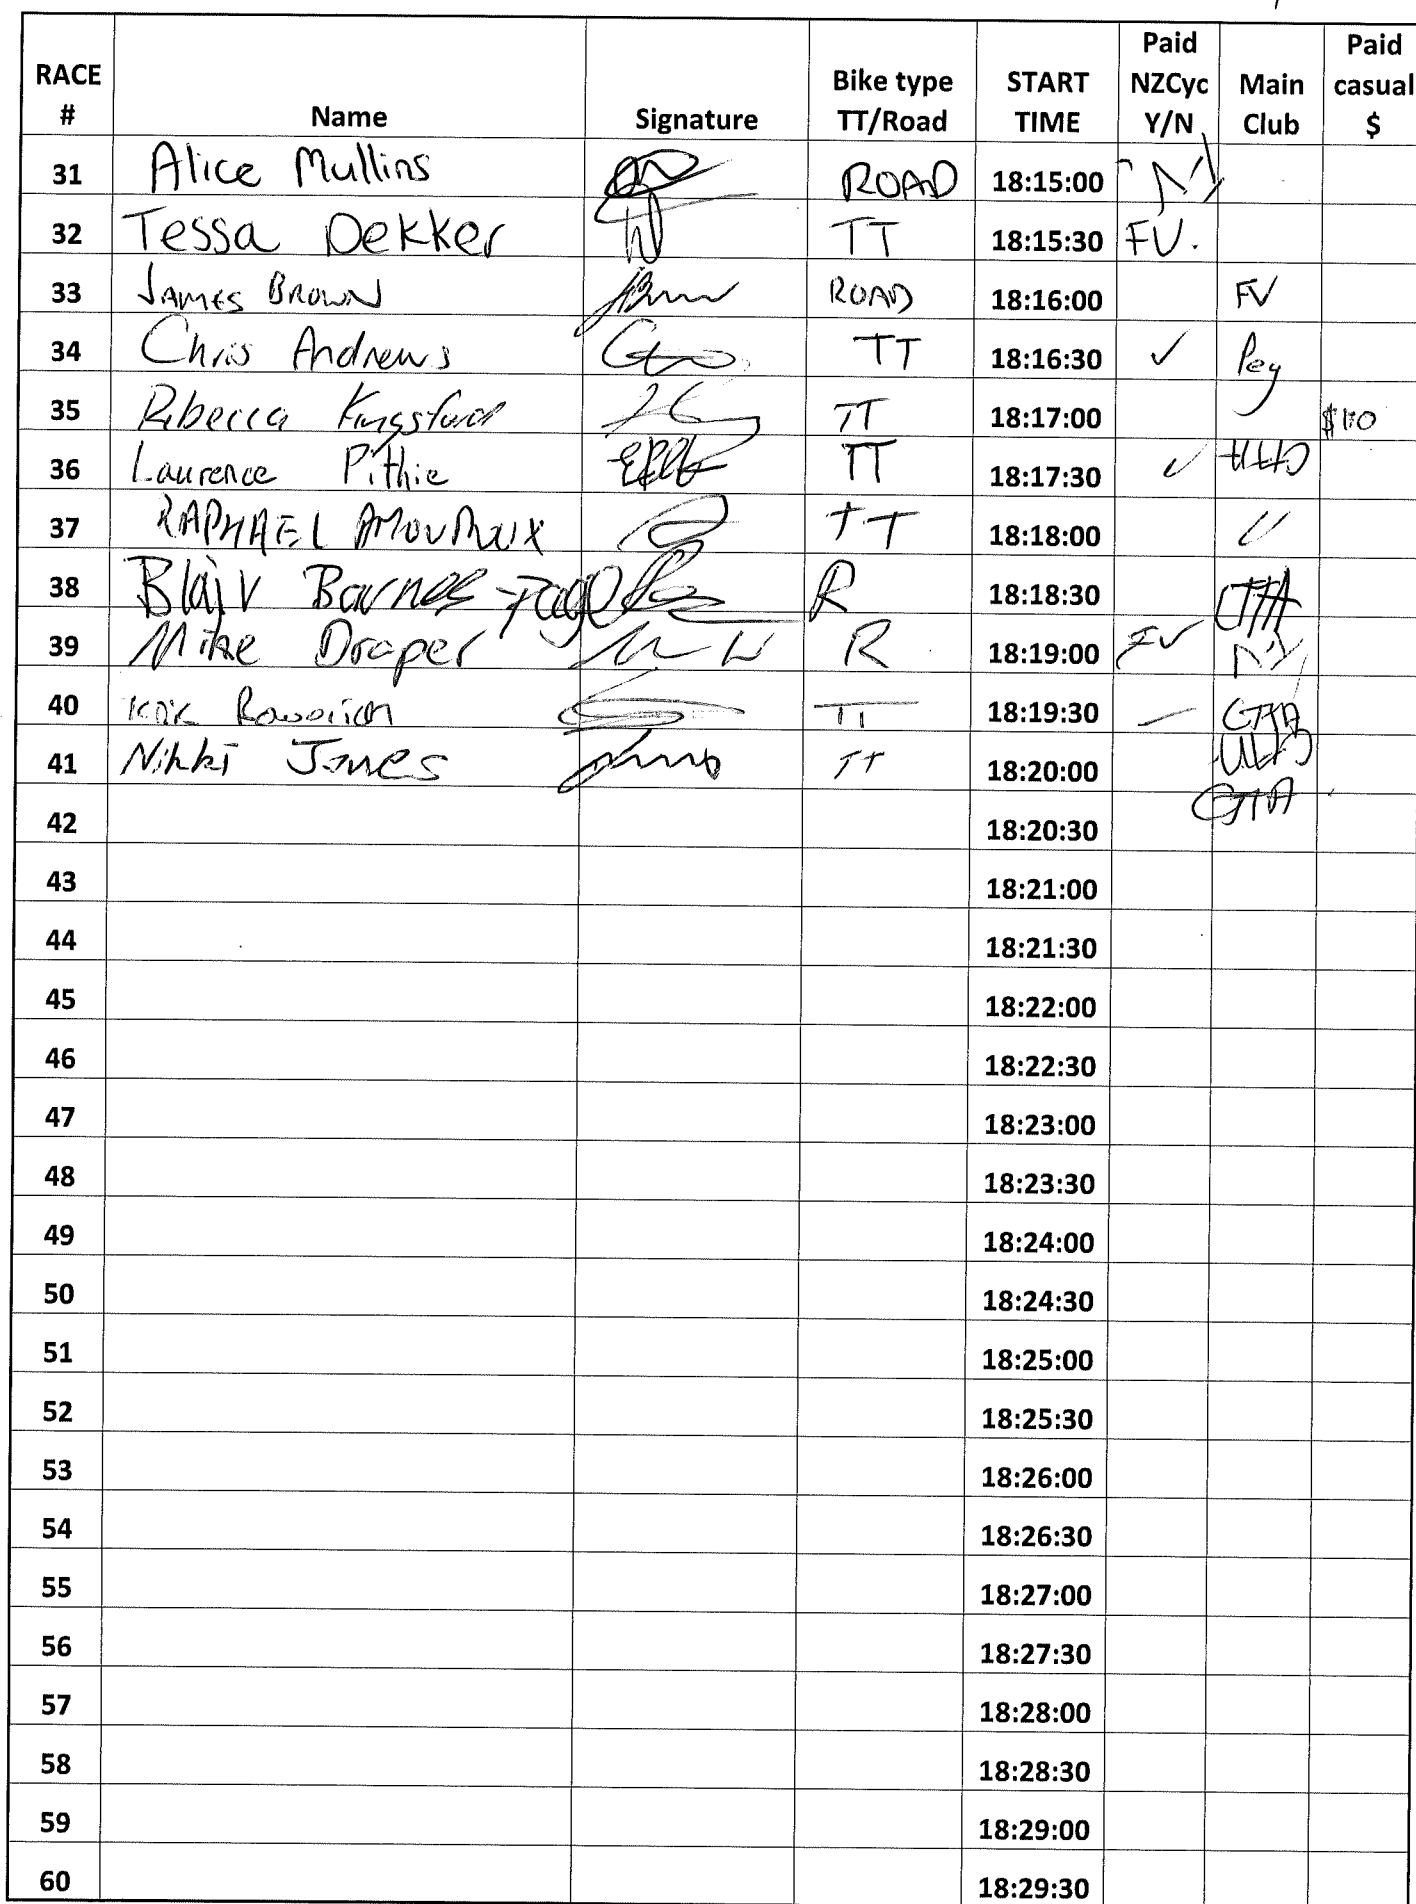 RACE # Name Signature Bike type TT/Road START TIME Paid NZCyc Y/N Main Club Paid casual $
31 Alice Mullins ROAD 18:15:00
32 Tessa Dekker TT 18:15:30 FV.
33 JAMES BROWN ROAD 18:16:00 FV
34 Chris Andrews TT 18:16:30 ✓ Peg
35 Rebecca Kingsford TT 18:17:00
36 Laurence Pithie TT 18:17:30 ✓
37 RAPHAEL TT 18:18:00
38 Blair Barnes R 18:18:30
39 Mike Draper R 18:19:00 FV
40 TT 18:19:30
41 Nikki Jones TT 18:20:00
42 18:20:30
43 18:21:00
44 18:21:30
45 18:22:00
46 18:22:30
47 18:23:00
48 18:23:30
49 18:24:00
50 18:24:30
51 18:25:00
52 18:25:30
53 18:26:00
54 18:26:30
55 18:27:00
56 18:27:30
57 18:28:00
58 18:28:30
59 18:29:00
60 18:29:30